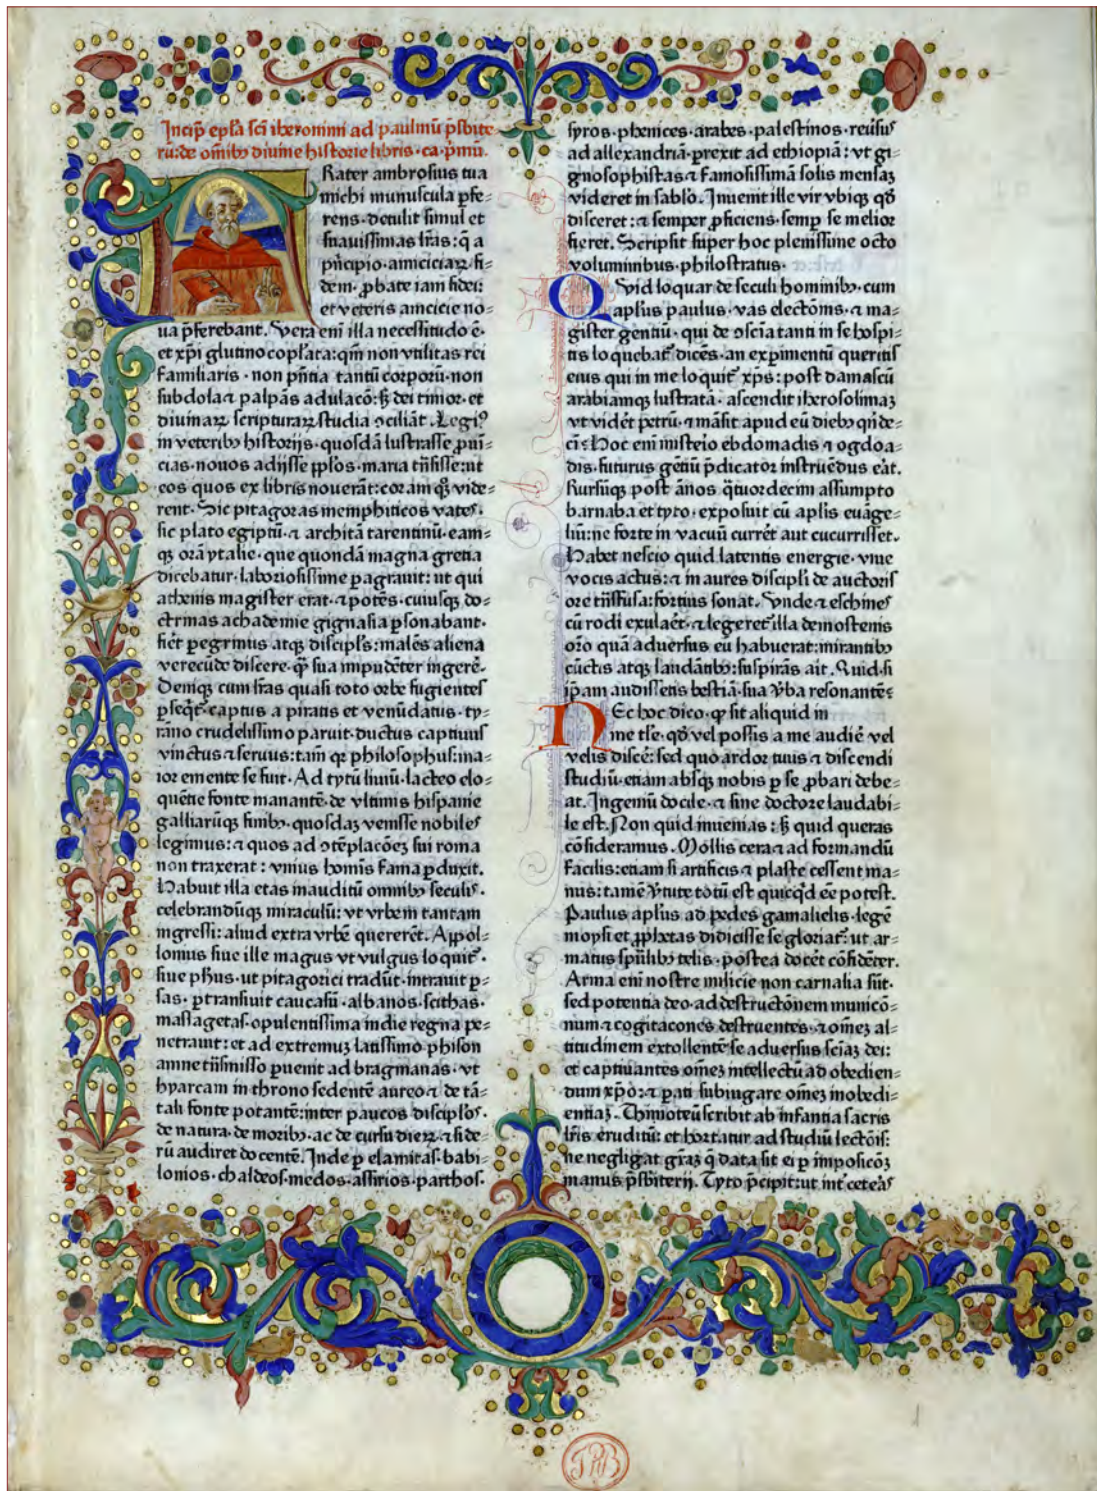 Incip̄ ep̄la sc̄i iheronimi ad paulinū p̄sbite-
rū: de om̄ibꝫ diuine historie libris. ca. p̄mū.
FRater ambrosius tua
michi munuscula ꝑfe-
rens. detulit simul et
suauissimas lr̄as: q̄ a
pͥncipio amiciciaꝝ fi-
dem. ꝓbate iam fidei:
et veteris amicicie no-
ua p̄ferebant. Vera enī illa necessitudo ē.
et xp̄i glutino copl̄ata: qm̄ non vtilitas rei
familiaris. non pn̄tia tantū corporū. non
subdola ⁊ palpās adulacō: sꝫ dei timor. et
diuinaꝝ scripturaꝝ studia ꝯciliāt. Legiꝰ
in veteribꝫ historijs. quosdā lustrasse ꝓuī-
cias. nouos adijsse ppl̄os. maria trāsisse: ut
eos quos ex libris nouerāt: coram qꝫ vide-
rent. Sic pitagoras memphiticos vates.
sic plato egiptū. ⁊ architā tarentinū. eam-
qꝫ orā ytalie. que quondā magna gretia
dicebatur. laboriosissime ꝑagrauit: ut qui
athenis magister erat. ⁊ potēs. cuiusqꝫ do-
ctrinas achademie gignasia ꝑsonabant.
fiēt ꝑegrinus atqꝫ discipl̄s: malēs aliena
verecūde discere. qꝫ sua impudēter ingerē.
Deniqꝫ cum lr̄as quasi toto orbe fugientes
ꝑseqt̄. captus a piratis et venūdatus. ty-
rāno crudelissimo paruit. ductus captiuus
vinctus ⁊ seruus: tam̄ qꝛ philosophus: ma-
ior emente se fuit. Ad tytū liuiū. lacteo elo-
quētie fonte manantē. de vltimis hispanie
galliarūqꝫ finibꝫ. quosdaꝫ venisse nobiles
legimus: ⁊ quos ad ꝯtēplacōeꝫ sui roma
non traxerat: vnius hoīnis fama ꝑduxit.
Habuit illa etas inauditū omnibꝫ seculis.
celebrandūqꝫ miraculū: vt vrbem tantam
ingressi: aliud extra vrbē quererēt. Appol-
lonius siue ille magus vt vulgus loquit̄.
siue ph̄us. ut pitagorici tradūt. intrauit ꝑ-
sas. ꝑtransiuit caucasū. albanos. scithas.
massagetas. opulentissima indie regna pe-
netrauit: et ad extremuꝫ latissimo phison
amne trāsmisso ꝑuenit ad bragmanas. vt
hyarcam in throno sedentē aureo ⁊ de tā-
tali fonte potantē: inter paucos discipl̄os.
de natura. de moribꝫ. ac de cursu dieꝝ. ⁊ side-
rū audiret docentē. Inde ꝑ elamitas. babi-
lonios. chaldeos. medos. assirios. parthos.
syros. phenices. arabes. palestinos. reūsus
ad allexandriā. ꝑrexit ad ethiopiā: vt gi-
gnosophistas ⁊ famosissimā solis mensaꝫ
videret in sablo. Inuenit ille vir vbiqꝫ qd̄
disceret: ⁊ semper ꝓficiens. semꝑ se melior
fieret. Scripsit super hoc plenissime octo
voluminibus. philostratus.
QVid loquar de seculi hominibꝫ. cum
apl̄us paulus. vas electōnis. ⁊ ma-
gister gentiū. qui de ꝯscīa tanti in se hospi-
tis loquebat̄ dicēs. an exꝑimentū queritis
eius qui in me loquit̄ xp̄s: post damascū
arabiamqꝫ lustratā. ascendit iherosolimaꝫ
vt vidēt petrū. ⁊ māsit apud eū diebꝫ qn̄de-
cī: Hoc enī misteio ebdomadis ⁊ ogdoa-
dis. futurus gētiū p̄dicator instruēdus eāt.
Rursūqꝫ post ānos q̄tuordecim assumpto
barnaba et tyto. exposuit cū apl̄is euāge-
liū: ne forte in vacuū currēt aut cucurrisset.
Habet nescio quid latentis energie. viue
vocis actus: ⁊ in aures discipl̄i de auctoris
ore trāsfusa: fortius sonat. Vnde ⁊ eschines
cū rodi exulaēt. ⁊ legeret̄ illa demostenis
oīo quā aduersus eū habuerat: mirantibꝫ
cūctis atqꝫ laudātibꝫ: suspirās ait. Quid si
ip̄am audissetis bestiā. sua v̄ba resonantē:
NEc hoc dico. qꝫ sit aliquid in
me tl̄e. qd̄ vel possis a me audiē vel
velis discē: sed quo ardor tuus ⁊ discendi
studiū. etiam absqꝫ nobis ꝑ se ꝓbari debe-
at. Ingeniū docile. ⁊ sine doctore laudabi-
le est. Non quid inuenias: sꝫ quid queras
cōsideramus. Mollis cera ⁊ ad formandū
facilis: etiam si artificis ⁊ plaste cessent ma-
nus: tamē v̄tute totū est quicqd̄ eē potest.
Paulus apl̄us ad pedes gamalielis. legē
moysi et ꝓphetas didicisse se gloriat̄: ut ar-
matus spūlibꝫ telis. postea docēt cōfidēter.
Arma enī nostre milicie non carnalia sūt.
sed potentia deo. ad destructōnem municō-
num ⁊ cogitacones destruentes. ⁊ om̄eꝫ al-
titudinem extollentē se aduersus sciaꝫ dei:
et captiuantes om̄eꝫ intellectū ad obedien-
dum xp̄o: ⁊ ꝑati subiugare om̄eꝫ inobedi-
entiaꝫ. Thimoteū scribit ab infantia sacris
lr̄is eruditū: et hortatur ad studiū lectōis:
ne negligat gr̄aꝫ q̄ data sit ei ꝑ imposicōꝫ
manus p̄sbiterij. Tyto p̄cipit: ut int̄ ceteās